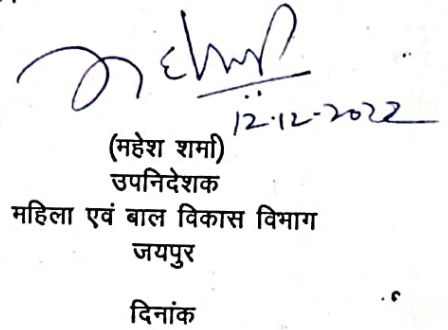 12-12-2022
(महेश शर्मा)
उपनिदेशक
महिला एवं बाल विकास विभाग
जयपुर
दिनांक